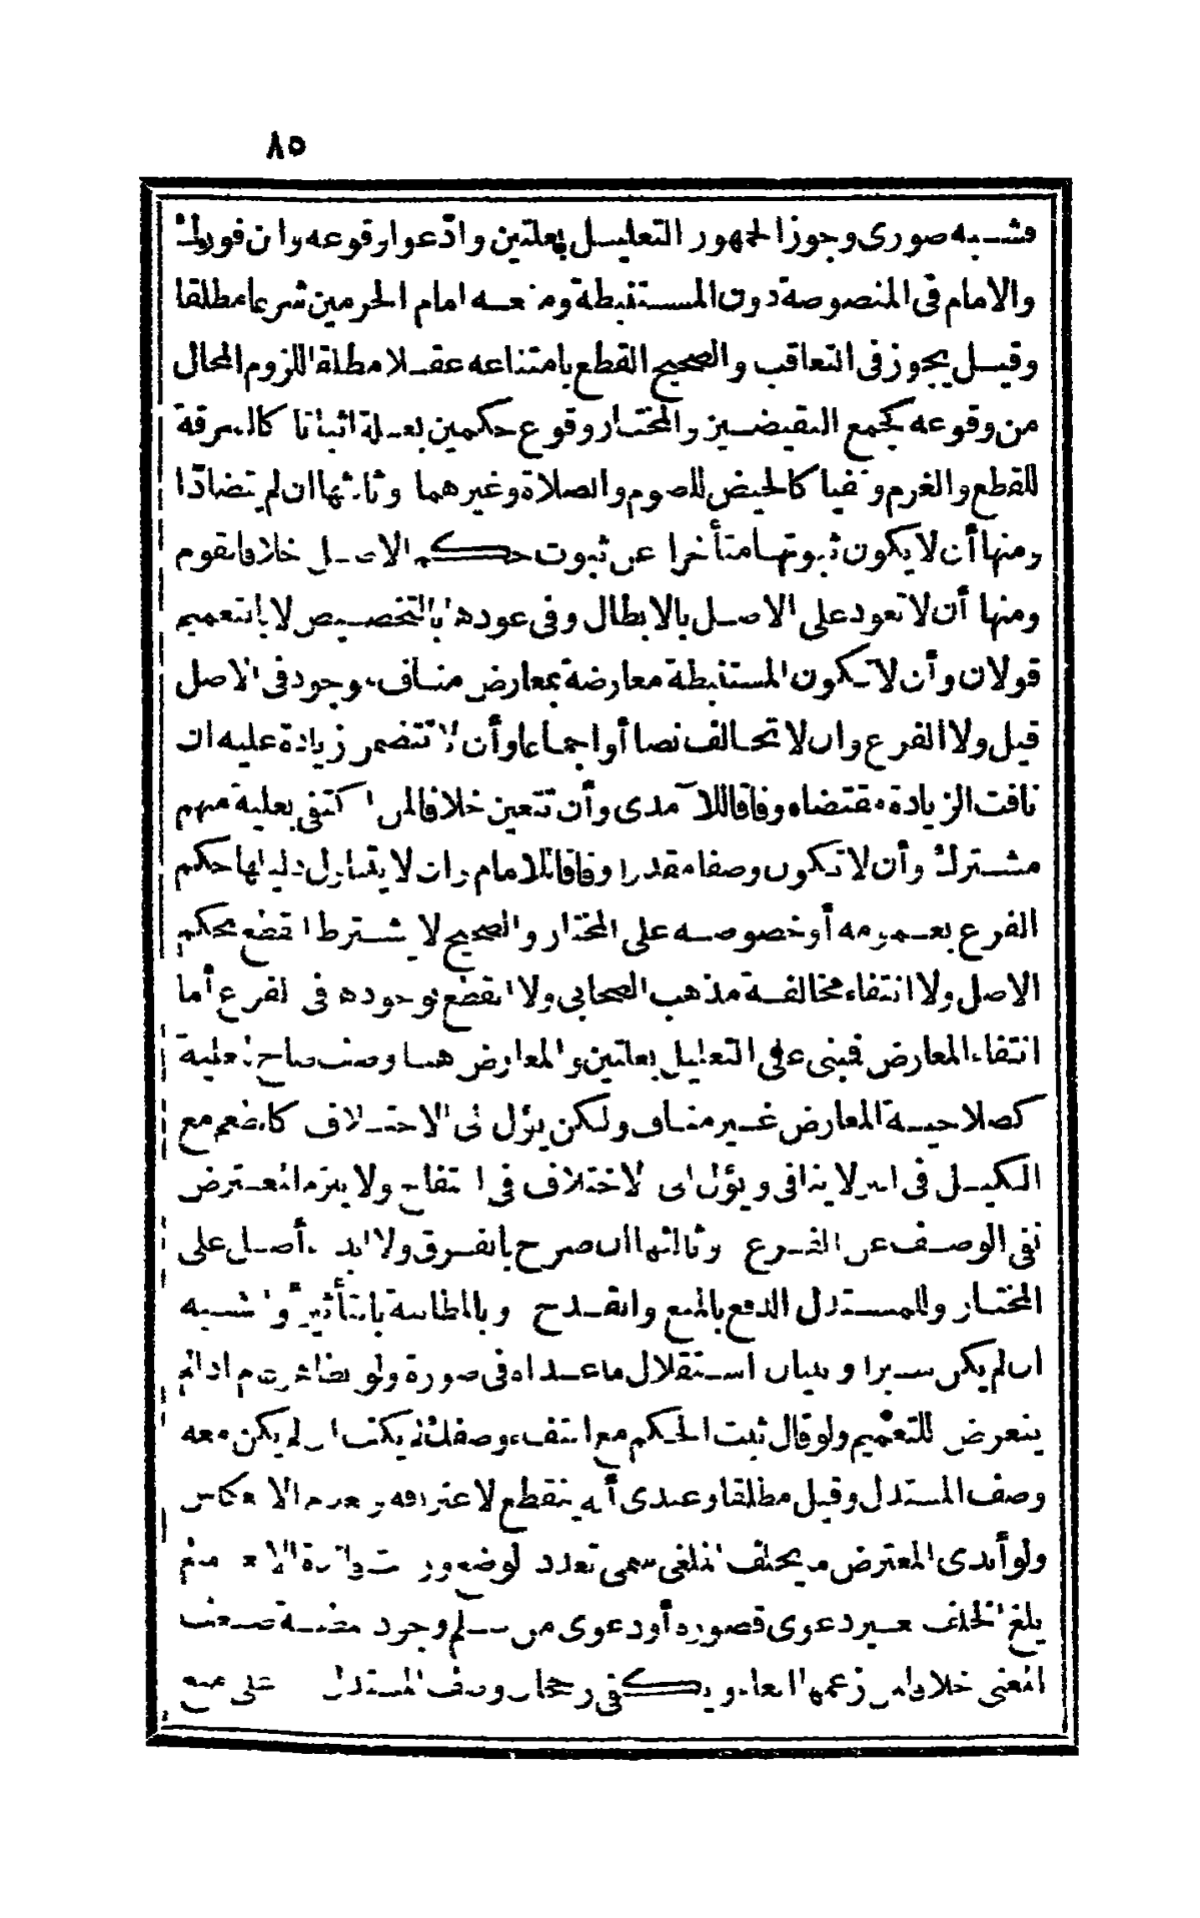 ٨٥
فشبه صورى وجوز الجمهور التعليل بعلتين وادّعوا وقوعه وابن فورك
والامام فى المنصوصة دون المستنبطة ومنعه امام الحرمين شرعا مطلقا
وقيل يجوز فى التعاقب والصحيح القطع بامتناعه عقلا مطلقا للزوم المحال
من وقوعه كجمع النقيضين والمختار وقوع حكمين بعلة اثباتا كالسرقة
للقطع والغرم ونفيا كالحيض للصوم والصلاة وغيرهما وثالثها ان لم يتضادّا
ومنها أن لا يكون ثبوتها متأخرا عن ثبوت حكم الاصل خلافا لقوم
ومنها أن لا تعود على الاصل بالابطال وفى عودها بالتخصيص لا بالتعميم
قولان وأن لا تكون المستنبطة معارضة بمعارض مناف موجود فى الاصل
قيل ولا الفرع وان لا تخالف نصا أو اجماعا وأن لا تتضمن زيادة عليه ان
نافت الزيادة مقتضاه وفاقا للآمدى وأن تتعين خلافا لمن اكتفى بعلية مبهم
مشترك وأن لا تكون وصفا مقدرا وفاقا للامام وان لا يتناول دليلها حكم
الفرع بعمومه أو خصوصه على المختار والصحيح لا يشترط القطع بحكم
الاصل ولا انتفاء مخالفة مذهب الصحابى ولا القطع بوجودها فى الفرع أما
انتفاء المعارض فمبنى على التعليل بعلتين والمعارض هنا وصف صالح للعلية
كصلاحية المعارض غير مناف ولكن يؤل الى الاختلاف كالطعم مع
الكيل فى البر لا ينافى ويؤل الى الاختلاف فى التفاح ولا يلزم المعترض
نفى الوصف عن الفرع وثالثها ان صرح بالفرق ولا ابداء أصل على
المختار وللمستدل الدفع بالمنع والقدح وبالمطالبة بالتأثير أو الشبه
ان لم يكن سبرا وببيان استقلال ماعداه فى صورة ولو بظاهر عام اذا لم
يتعرض للتعميم ولو قال ثبت الحكم مع انتفاء وصفك لم يكف ان لم يكن معه
وصف المستدل وقيل مطلقا وعندى أنه ينقطع لاعترافه ولعدم الانعكاس
ولو أبدى المعترض ما يخلف الملغى سمى تعدد الوضع وزالت فائدة الالغاء ما لم
يلغ الخلف بغير دعوى قصوره أو دعوى من سلم وجود المظنة ضعف
المعنى خلافا لمن زعمهما الغاء ويكفى رجحان وصف المستدل على منع